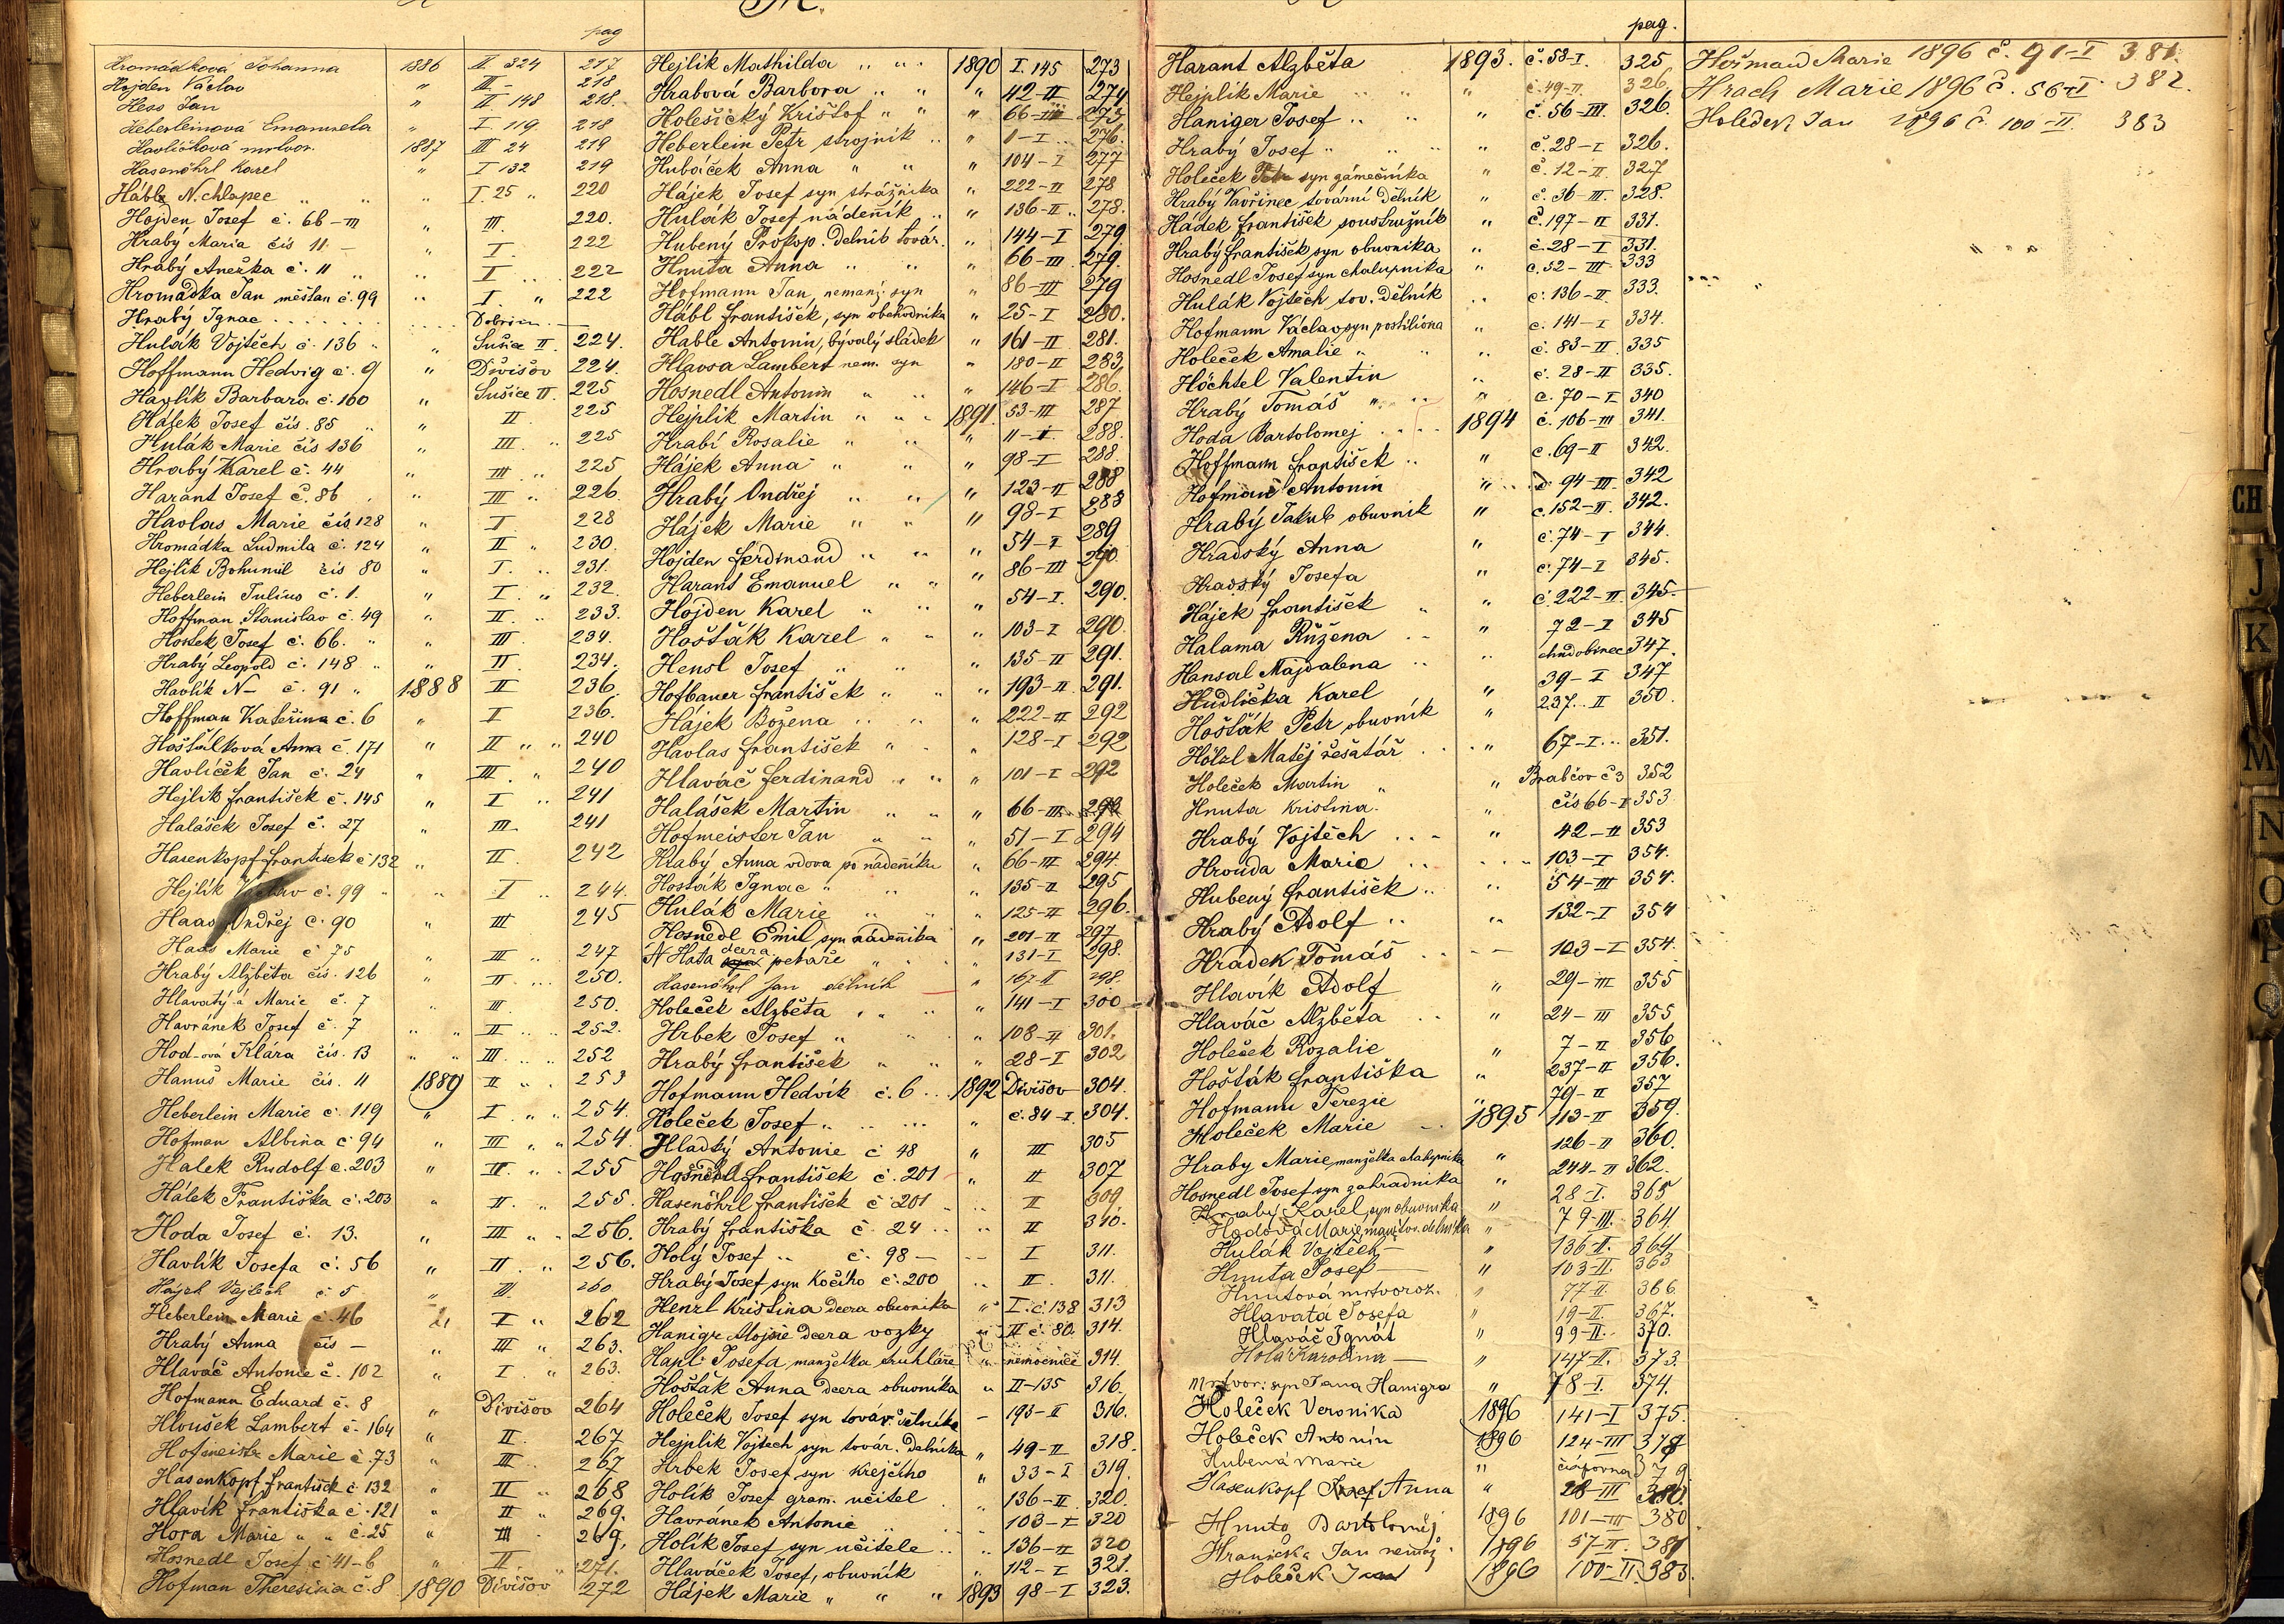 pag
Hromádková Johanna 1886 II 324 217
Hojden Václav " III - 218
Hess Jan " II 148 218.
Heberleinová Emanuela " I 119. 218
Havlíčková mrtvor. 1887 III 24 219
Hasenöhrl Karel " I 132 219
Háble N. chlapec " " " I. 25 " 220
Hojden Josef č. 66-III " III. 220.
Hrabý Maria čís 11 - " I. 222
Hrabý Anežka č. 11 " " I 222
Hromadka Jan měšťan č. 99 " I " 222
Hrabý Ignac Dobršín
Hulák Vojtěch č. 136 " " Sušice II. 224.
Hoffmann Hedvig č. 9 " Divišov 224.
Havlík Barbara č. 160 " Sušice II. 225
Hálek Josef čís. 85 " " II 225
Hulák Marie čís 136 " III. " 225
Hrabý Karel č. 44 " III " 225
Harant Josef č. 86 " III " 226.
Havlas Marie čís 128 " I 228
Hromádka Ludmila č. 124 " II " 230.
Hejlík Bohumil čís 80 " I. " 231.
Heberlein Julius č. 1. " I. " 232.
Hoffman Stanislav č. 49 " II. " 233.
Hostek Josef č. 66. " " III. 234.
Hrabý Leopold č. 148 " " II 234.
Havlík N- č. 91 " 1888 II 236.
Hoffman Kateřina č. 6 " I 236.
Hošťálková Anna č. 171 " II " " 240
Havlíček Jan č. 24 " III " 240
Hejlík František č. 145 " I " 241
Halášek Josef č. 27 " III 241
Hasenkopf Frantisek č 132 " II 242
Hejlík Václav č. 99 " " I " 244.
Haas Ondřej č. 90 " III 245
Haas Marie č 75 " III " 247
Hrabý Alžběta čís. 126 " II " 250.
Hlavatý-á Marie č. 7 " III. 250.
Havránek Josef č. 7 " " II " 252.
Hod-ová Klára čís. 13 " " III. " 252
Hanuš Marie čís. 11 1889 II " 253
Heberlein Marie č. 119 " I " " 254.
Hofman Albina č 94 " III " " 254.
Halek Rudolf č. 203 " II. " 255
Hálek Františka č. 203 " II. " 255.
Hoda Josef č. 13. " III " " 256.
Havlík Josefa č. 56 " II. " 256.
Hájek Vojtěch č 5 " III. 260
Heberlein Marie č. 46 " I " 262
Hrabý Anna čís - " III " 263.
Hlaváč Antonie č. 102 " I " 263.
Hofmann Eduard č. 8 " Divišov 264
Hloušek Lambert č. 164 " II. 267
Hofmeistr Marie č. 73 " III. 267
Hasenkopf František č 132 " II " 268
Hlavík Františka č. 121 " II " 269.
Hora Marie " " č. 25 " III 269.
Hosnedl Josef č 41-6 " II " 271.
Hofman Theresina č. 8 1890 Divišov 272
Hejlik Mathilda " " " 1890 I. 145 273
Hrabová Barbora " " " 42-II 274
Holešický Krištof " " " 66-III 275
Heberlein Petr strojník " " 1-I 276.
Hubáček Anna " " " 104-I 277
Hájek Josef syn strážnika " 222-II 278
Hulák Josef nádeňník " " 136-II 278.
Hubený Prokop. Dělník továr. " 144-I 279
Hnuta Anna " " " 66-III. 279.
Hofmann Jan, nemanž. syn " 86-III 279
Hábl František, syn obchodníka " 25-I 280.
Hable Antonin, bývalý sládek " 161-II 281.
Hlavsa Lambert nem. syn " 180-II 283
Hosnedl Antonin " " " 146-I 286.
Hejplik Martin " " " 1891. 33-III 287
Hrabí Rosalie " " " 11-II. 288.
Hájek Anna " " " 98-I 288.
Hrabý Ondřej " " " 123-II 288
Hájek Marie " " " 98-I 288
Hojden Ferdinand " " " 54-I 289
Harant Emanuel " " " 86-III 290
Hojden Karel " " " 54-I. 290.
Hošťák Karel " " " 103-I 290.
Hensl Josef " " " 135-II 291.
Hofbauer František " " " 193-II. 291.
Hájek Božena " " " 222-II 292
Havlas František " " " 128-I 292
Hlaváč Ferdinand " " " 101-I 292
Halášek Martin " " " 66-III
Hofmeister Jan " " " 51-I 294
Hrabý Anna vdova po nádeňníku " 66-III 294.
Hosťák Ignac " " " 135-II 295
Hulák Marie " " " 125-II 296.
Hosnedl Emil syn nádenníka " 201-II 297
N Haťa dcera pekaře " " 131-I 298.
Hasenöhrl Jan dělník " 167-II 298.
Holeček Alžběta " " " 141-I 300
Hrbek Josef " " " 108-II 301.
Hrabý František " " " 28-I 302
Hofmann Hedvik č. 6 1892 Divišov 304.
Holeček Josef " " č. 84-I 304.
Hladký Antonie č 48 " III 305
Hosnedl František č. 201 " II 307
Hasenöhrl František č 201 " II 309
Hrabý Františka č. 24 " II 310.
Holý Josef " č. 98 - I 311.
Hrabý Josef syn Kočího č. 200 " II. 311.
Henzl Kristina dcera obuvníka " I. č. 138 313
Hanigr Alojsie dcera vozky " II č. 80. 314.
Hapl Josefa, manželka truhláře " nemocnice 314.
Hošťák Anna dcera obuvníka " II-135 316.
Holeček Josef syn továr. dělníka - 193-II 316.
Hejplik Vojtech syn továr. Dělníka " 49-II 318.
Hrbek Josef syn krejčího " 33-I 319.
Holík Josef gram. učitel " 136-II 320.
Havránek Antonie 103-I 320
Holík Josef syn učitele " " 136-II 320
Hlaváček Josef, obuvník " 112-I 321.
Hájek Marie " " " 1893 98-I 323.
pag.
Harant Alzběta 1893. č. 58-I. 325
Hejplik Marie " " " č. 49-II. 326
Haniger Josef " " " č. 56-III. 326.
Hrabý Josef " " " č. 28-I 326.
Holeček Petr syn zámečníka " č. 12-II 327
Hrabý Vavřinec tovární dělník " č. 36-III. 328.
Hadek František soustružník " č. 197-II 331.
Hrabý František syn obuvníka " č. 28-I 331.
Hosnedl Josef syn chalupníka " č. 52-III 333
Hulák Vojtěch tov. Dělník " č. 136-II. 333.
Hofmann Václav syn postiliona " č. 141-I 334.
Holeček Amalie " " " č. 83-II. 335
Höchtel Valentin " č. 28-II 335.
Hrabý Tomáš " " č. 70-I 340
Hoda Bartolomej 1894 č. 106-III 341.
Hoffmann František " " č. 69-II 342.
Hofmann Antonin " č. 94-III. 342
Hrabý Jakub obuvnik " č. 152-II. 342.
Hradský Anna " č. 74-I 344.
Hradský Josefa " č. 74-I 345.
Hájek František " " č. 222-II. 345.
Halama Růžena " 72-I 345
Hansal Majdalena " " chudobinec 347.
Hudlička Karel " 39-I 347
Hošťák Petr obuvník " 237. II 350.
Hölzl Matěj řešatář " 67-I 351.
Holeček Martin " " Brabčov č 3 352
Hnuta Kristina. " čís 66-I 353
Hrabý Vojtěch " 42-II 353
Hrouda Marie " " 103-I 354.
Hubený František " " 54-III 354.
Hrabý Adolf " " 132-I 354
Hradek Tomáš 103-I 354.
Hlavík Adolf " 29-III 355
Hlaváč Alžběta " 24-III 355
Holeček Rozalie " 7-II 356
Hošťák Františka " 237-II 356.
Hofmann Terezie " 79-II 357
Holeček Marie 1895 113-II 359.
Hraby Marie manželka chalupníka " 126-II 360.
Hosnedl Josef syn zahradníka " 244-II 362.
Hrabý Karel syn obuvníka " 28-I. 365
Hodová Marie, manž. tov. dělníka " 79-III. 364.
Hulák Vojtěch - " 136-II. 364
Hnuta Josef - " 103-II. 363
Hnutová mrtvoroz. " 77-II. 366
Hlavatá Josefa " 19-II. 367.
Hlaváč Ignát " 99-II. 370.
Holá Karolina - " 147-II. 373.
Mrtvor: syn Jana Hanigra " 78-I. 374.
Holeček Veronika 1896 141-I 375.
Holeček Antonín 1896 124-III 378
Hubená Marie " 379
Hasenkopf Anna " 28-III 380.
Hnuta Bartoloměj 1896 101-III 380
Hranička Jan nemaž. 1896 57-II. 381
Holeček Jan 1896 100-II. 383.
Hořmand Marie 1896 č. 91-I 381.
Hrach Marie 1896 č. 56-I 382.
Holeček Jan 1896 č. 100-II. 383
CH
J
K
M
N
O
P
Q